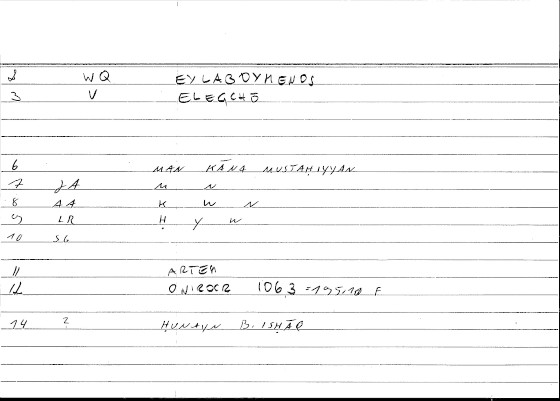 2 WQ EYLABOYMENOS
3 V ELEGCHĒ
6 MAN KĀNA MUSTAḤIYYAN
7 JA M N
8 AA K W N
9 LR Ḥ Y W
10 SG
11 ARTEM
12 ONIROCR 106,3 =195.10 F
14 2 ḤUNAYN B. ISḤĀQ